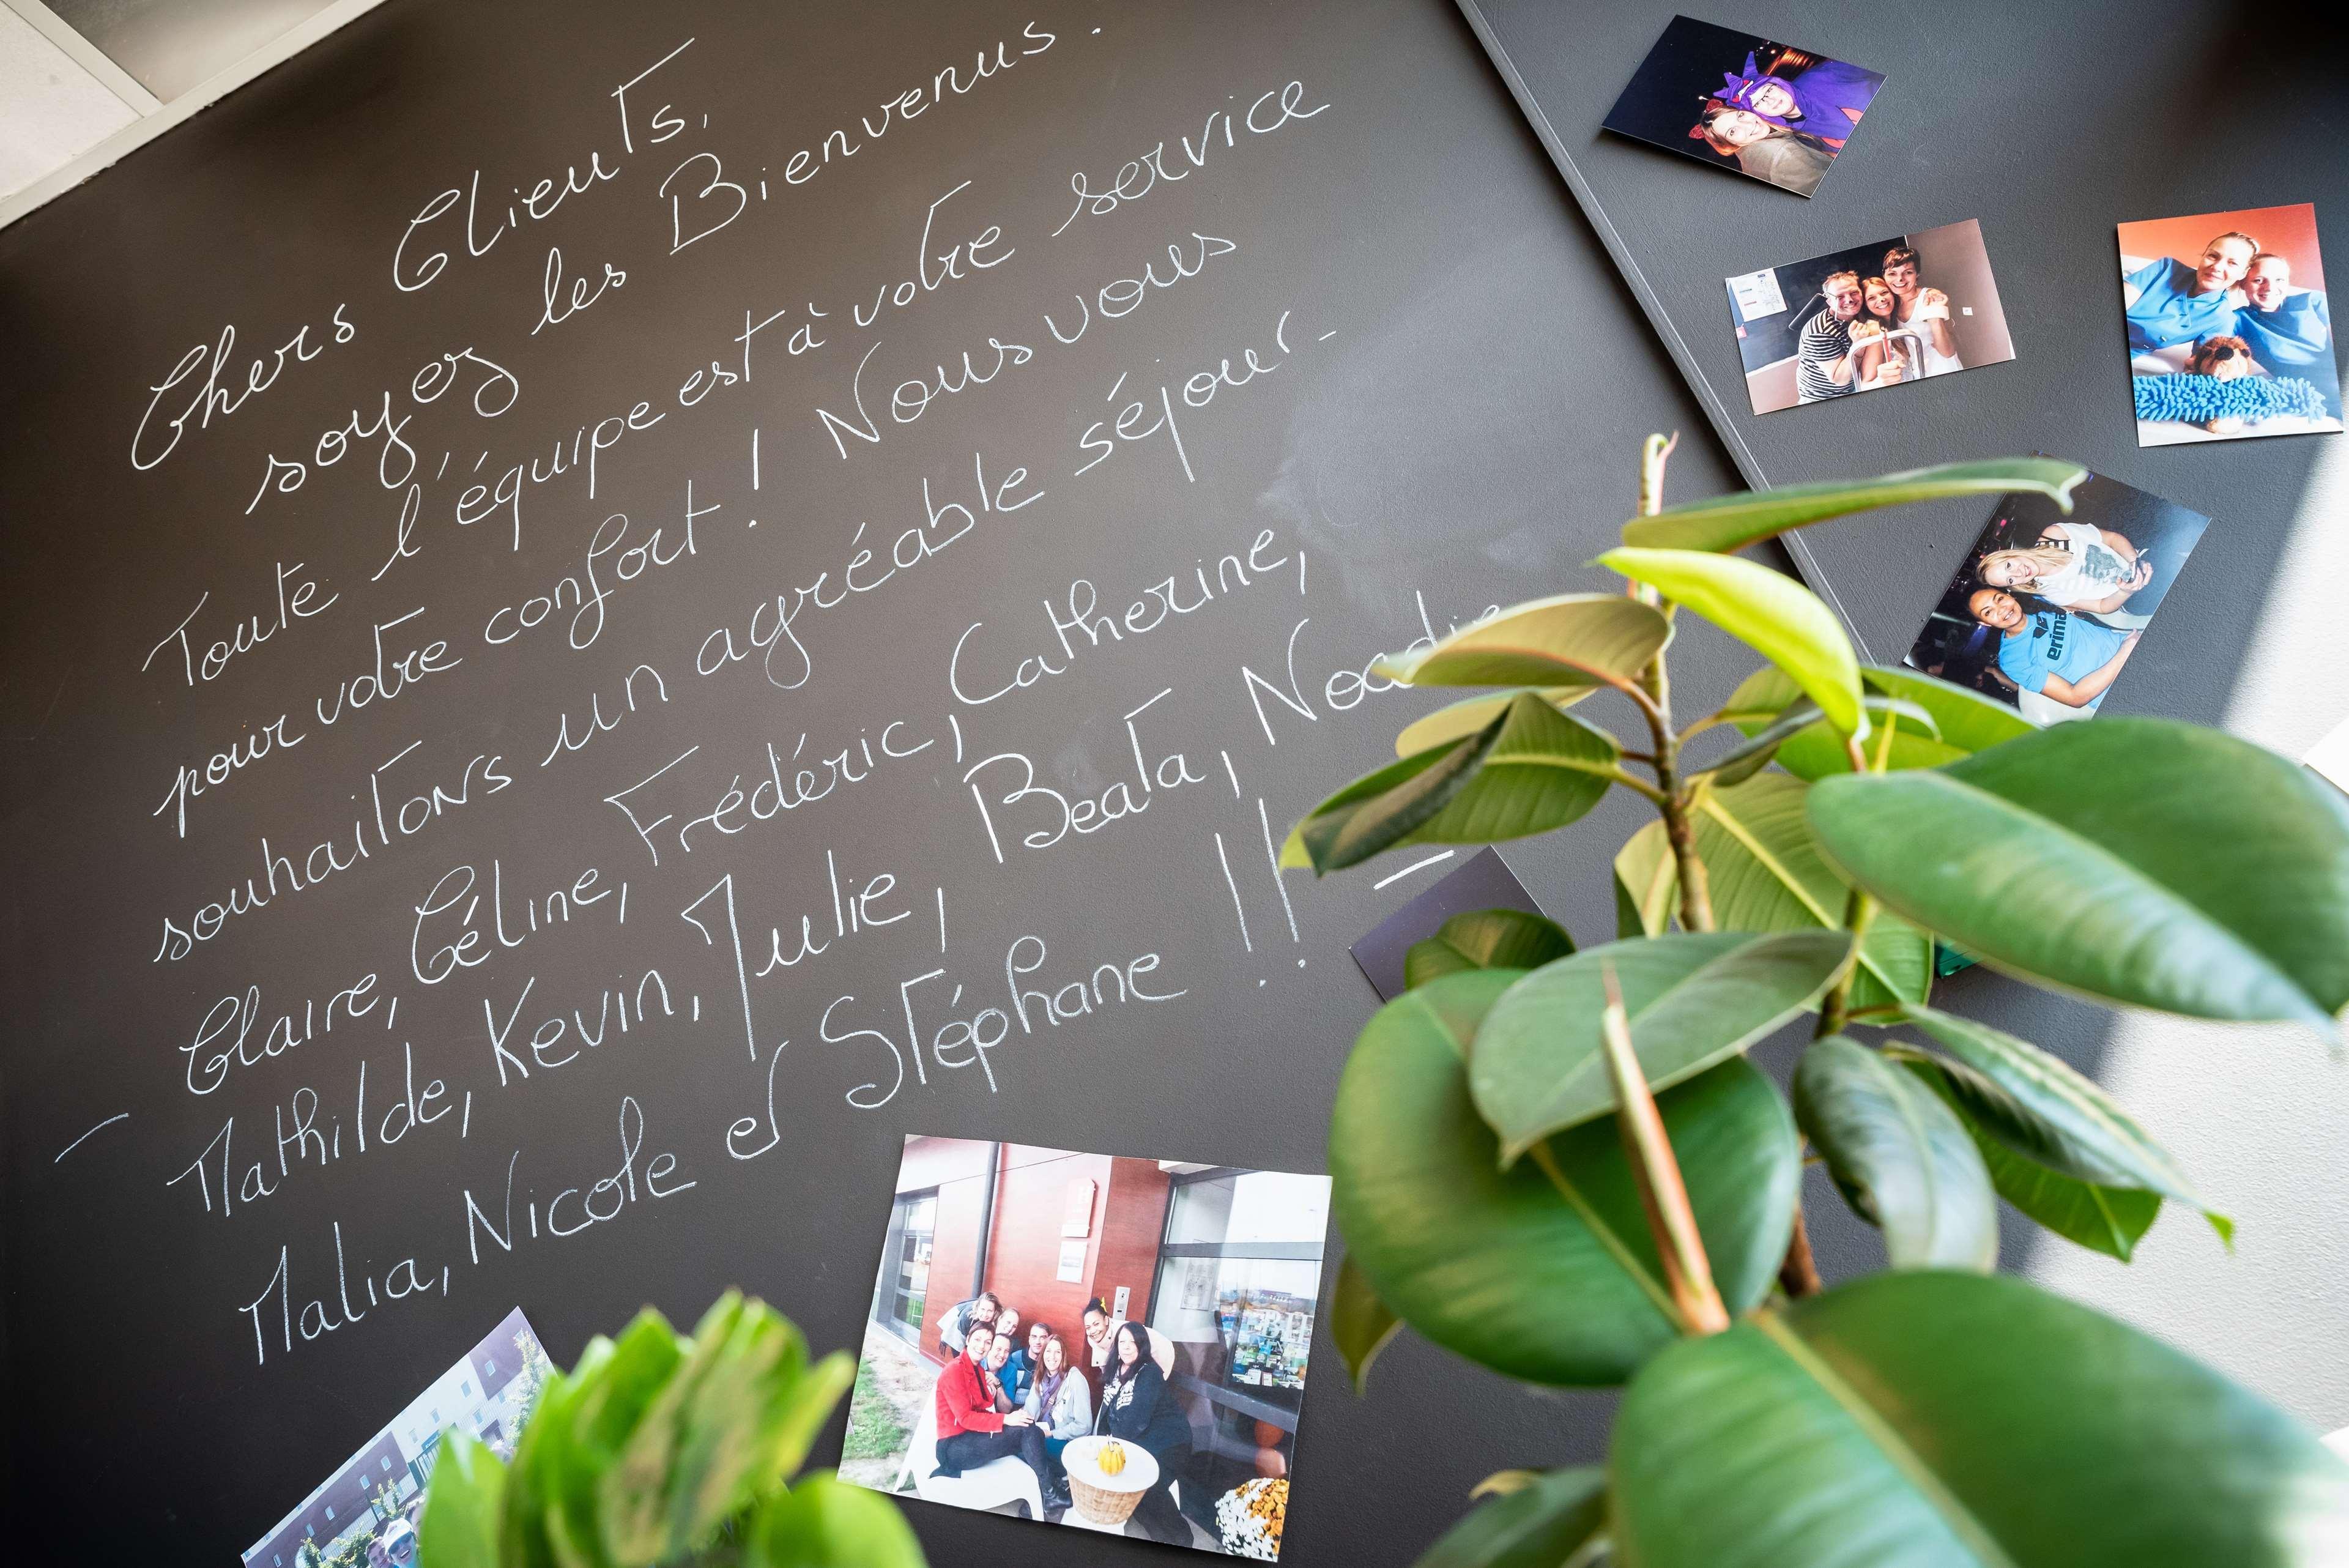 Chers Clients,
soyez les Bienvenus.
Toute l'équipe est à votre service
pour votre confort ! Nous vous
souhaitons un agréable séjour.
Claire, Céline, Frédéric, Catherine,
Mathilde, Kevin, Julie, Beata,
Malia, Nicole et Stéphane !!
erima